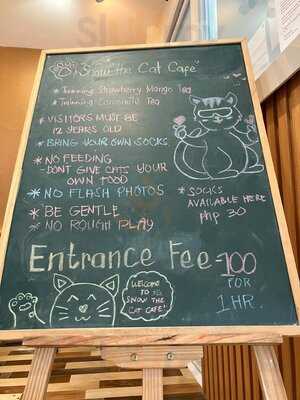 Snow the Cat Cafe
* Trinning Strawberry Mango Tea
* Trinning Chocolate Tea
* VISITORS MUST BE
12 YEARS OLD
* BRING YOUR OWN SOCKS
* NO FEEDING
- DONT GIVE CATS YOUR
OWN FOOD
* NO FLASH PHOTOS
* SOCKS
AVAILABLE HERE
Php 30
* BE GENTLE
* NO ROUGH PLAY
Entrance Fee - 100
FOR
1 HR.
Welcome
TO
SNOW THE
CAT CAFE!